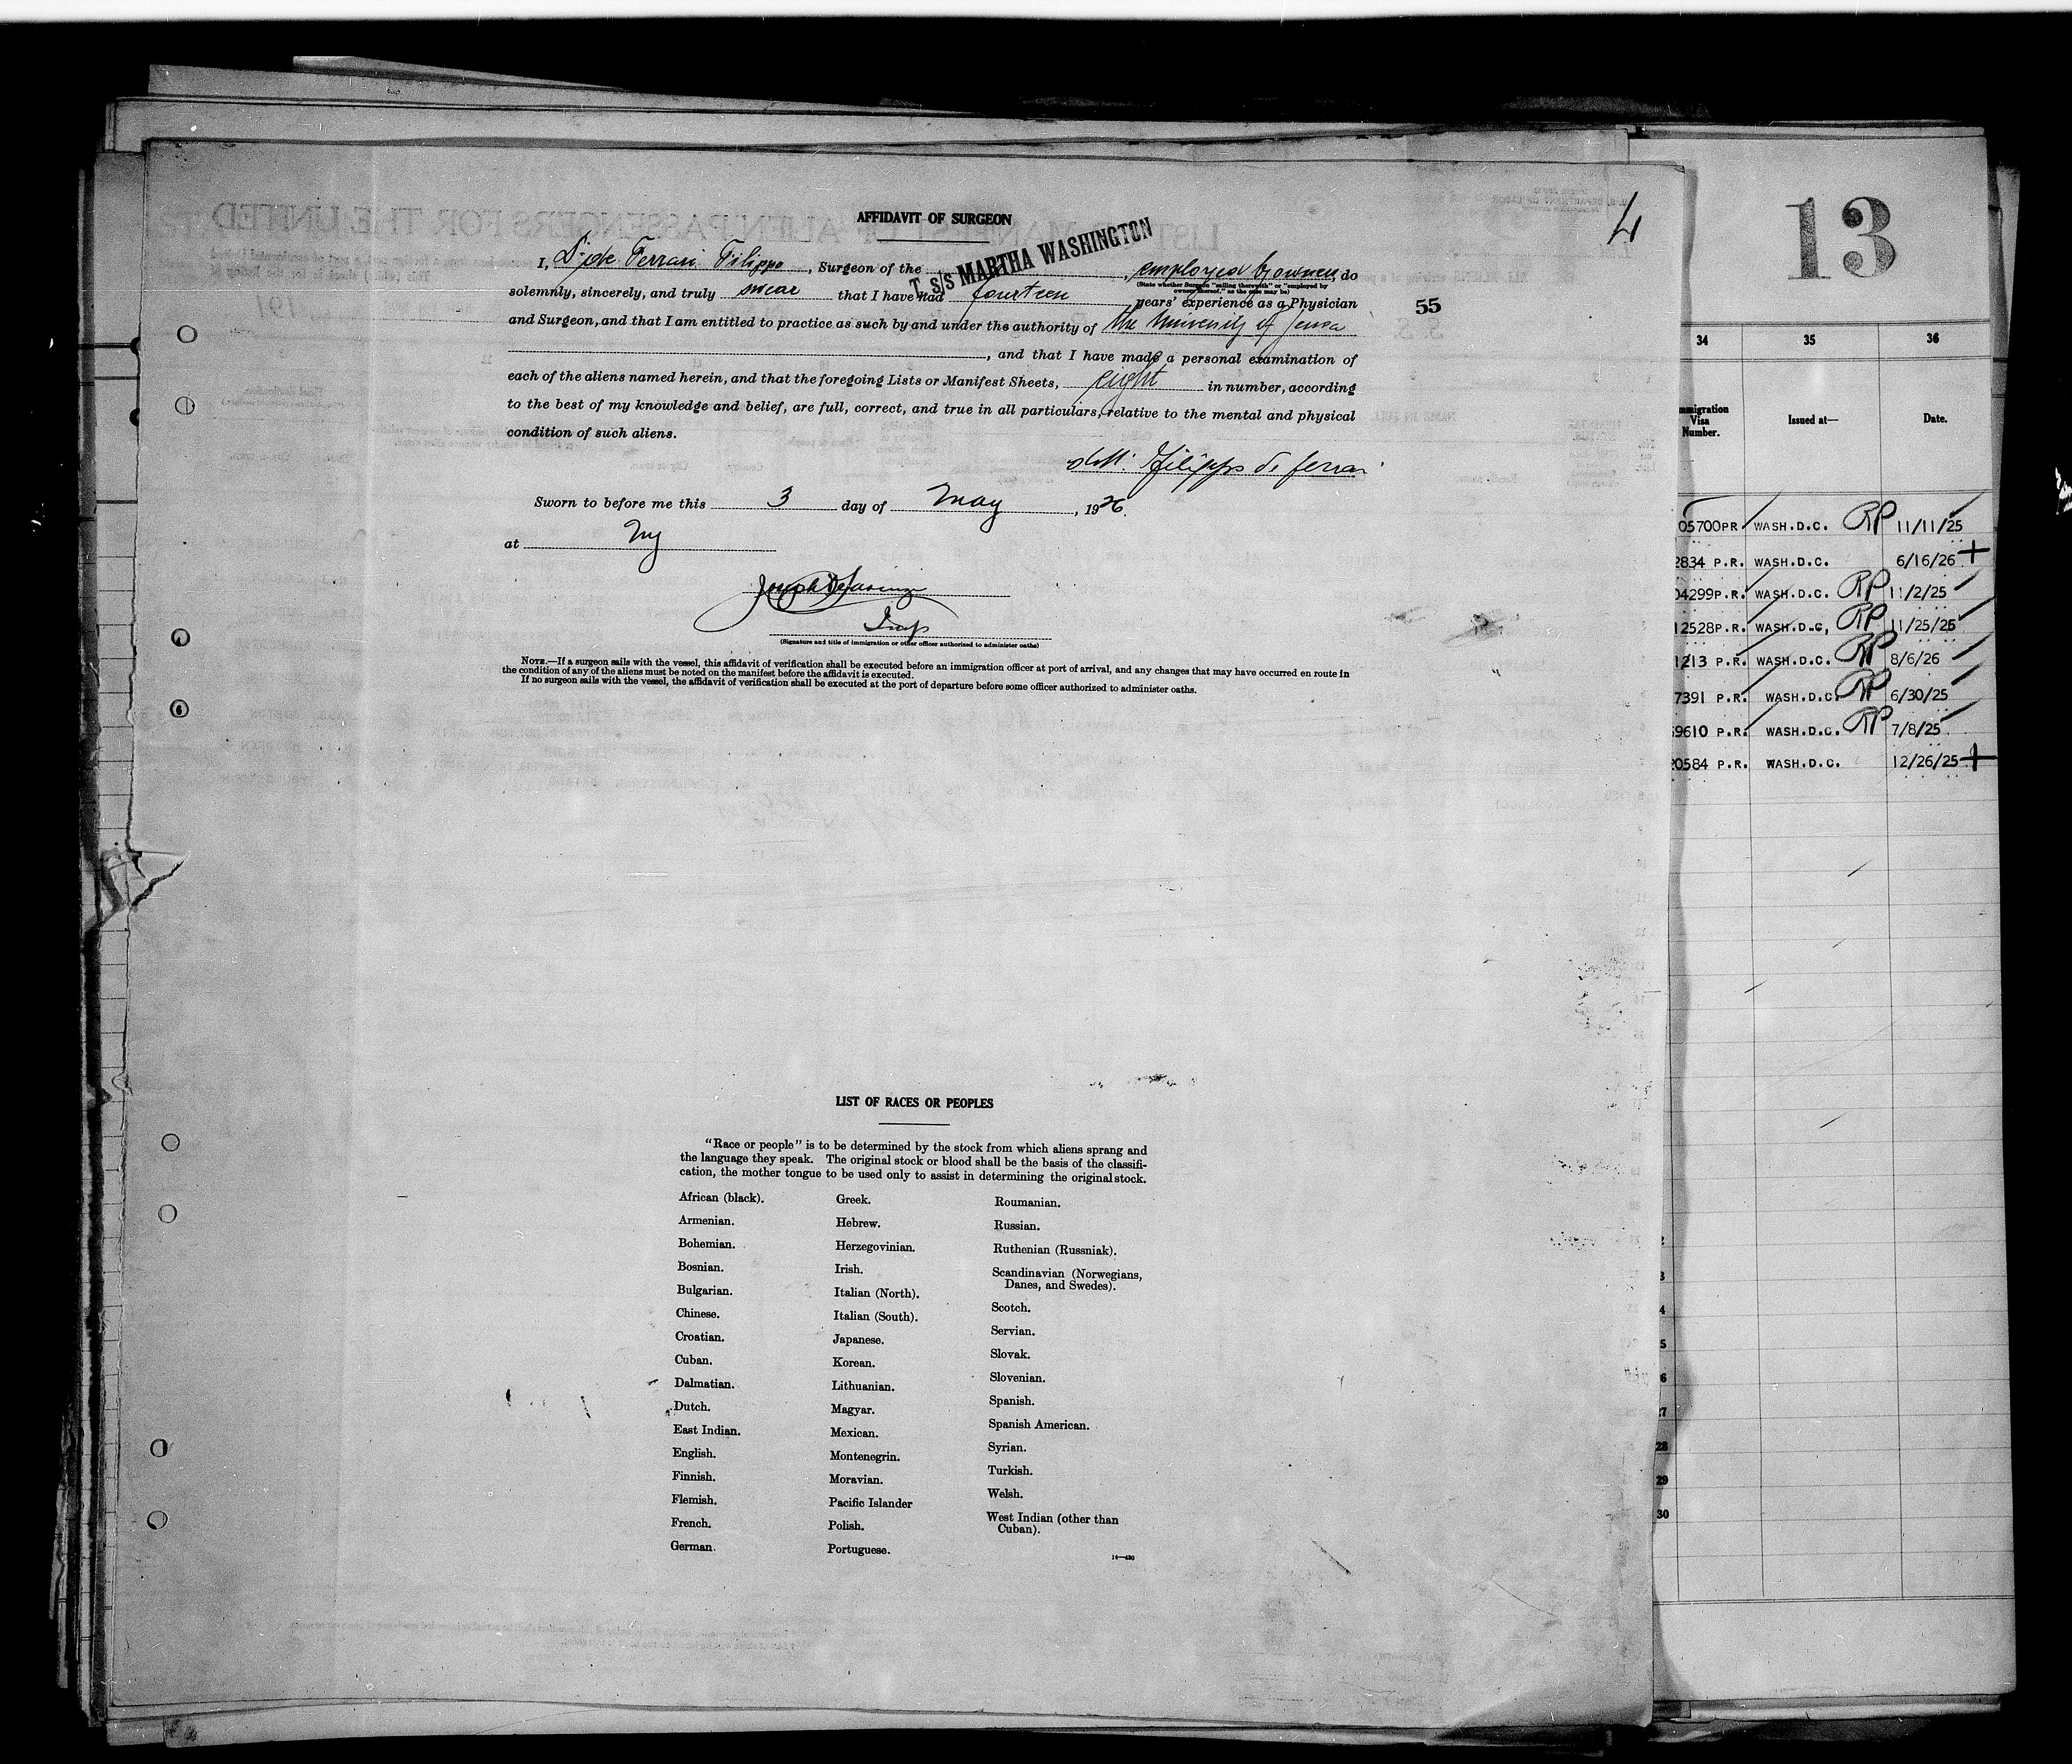 4
13
AFFIDAVIT OF SURGEON
I, Dr de Ferrari Filippo, Surgeon of the T. S/S MARTHA WASHINGTON, employed by owner, do
(State whether Surgeon "sailing therewith" or "employed by
owners thereof," as the case may be)
solemnly, sincerely, and truly swear that I have had fourteen years' experience as a Physician
55
and Surgeon, and that I am entitled to practice as such by and under the authority of the University of Genoa
, and that I have made a personal examination of
each of the aliens named herein, and that the foregoing Lists or Manifest Sheets, eight in number, according
to the best of my knowledge and belief, are full, correct, and true in all particulars, relative to the mental and physical
condition of such aliens.
dott. Filippo de Ferrari
Sworn to before me this 3 day of May, 1926.
at NY
Joseph
Insp
(Signature and title of immigration or other officer authorized to administer oaths)
NOTE.—If a surgeon sails with the vessel, this affidavit of verification shall be executed before an immigration officer at port of arrival, and any changes that may have occurred en route in
the condition of any of the aliens must be noted on the manifest before the affidavit is executed.
If no surgeon sails with the vessel, the affidavit of verification shall be executed at the port of departure before some officer authorized to administer oaths.
LIST OF RACES OR PEOPLES
"Race or people" is to be determined by the stock from which aliens sprang and
the language they speak. The original stock or blood shall be the basis of the classifi-
cation, the mother tongue to be used only to assist in determining the original stock.
African (black).
Armenian.
Bohemian.
Bosnian.
Bulgarian.
Chinese.
Croatian.
Cuban.
Dalmatian.
Dutch.
East Indian.
English.
Finnish.
Flemish.
French.
German.
Greek.
Hebrew.
Herzegovinian.
Irish.
Italian (North).
Italian (South).
Japanese.
Korean.
Lithuanian.
Magyar.
Mexican.
Montenegrin.
Moravian.
Pacific Islander
Polish.
Portuguese.
Roumanian.
Russian.
Ruthenian (Russniak).
Scandinavian (Norwegians,
Danes, and Swedes).
Scotch.
Servian.
Slovak.
Slovenian.
Spanish.
Spanish American.
Syrian.
Turkish.
Welsh.
West Indian (other than
Cuban).
14—430
34 35 36
mmigration
Visa
Number.
Issued at—
Date.
05700PR WASH.D.C. RP 11/11/25
2834 P.R. WASH.D.C. 6/16/26
04299P.R. WASH.D.C. RP 11/2/25
12528P.R. WASH.D.C, RP 11/25/25
1213 P.R. WASH.D.C. RP 8/6/26
7391 P.R. WASH.D.C. RP 6/30/25
69610 P.R. WASH.D.C. RP 7/8/25
20584 P.R. WASH.D.C. 12/26/25
28
29
30